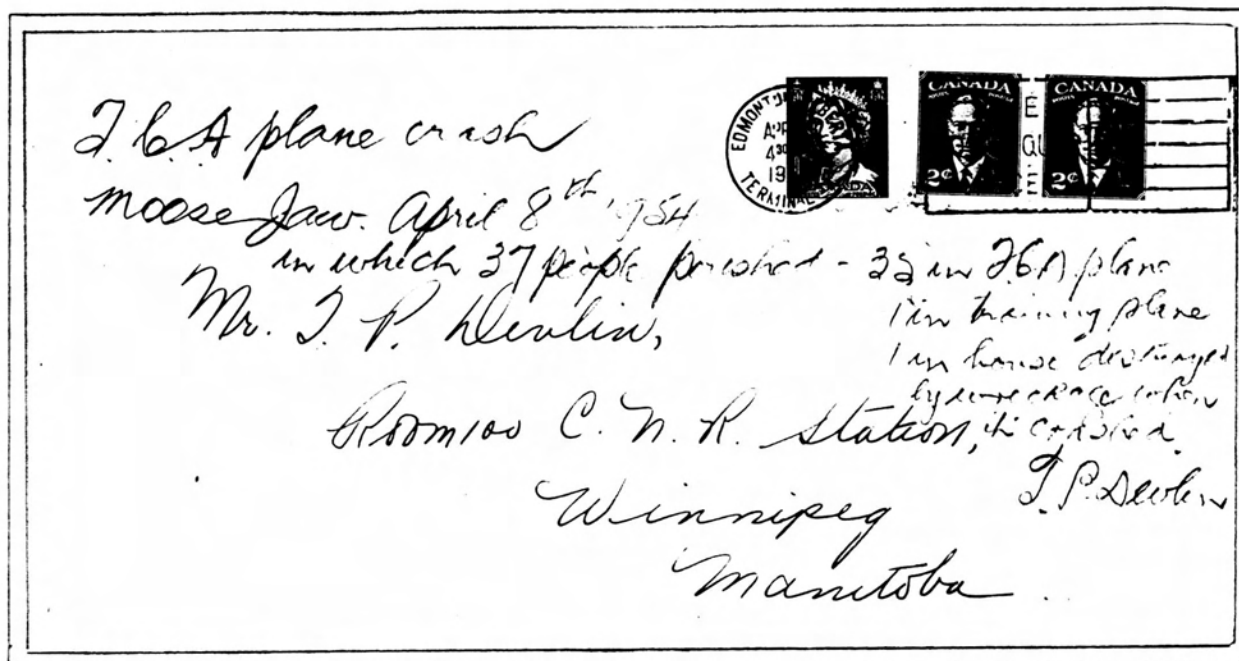 T.C.A plane crash
Moose Jaw. April 8th 1954
in which 37 people perished - 35 in T.C.A plane
1 in training plane
1 in house destroyed
by wreckage when
it crashed.
T.P. Devlin
Mr. T. P. Devlin,
Room 100 C. N. R. Station,
Winnipeg
Manitoba
EDMONTON ALBERTA
APR
430
19
TERMINAL
CANADA
2¢
CANADA
2¢